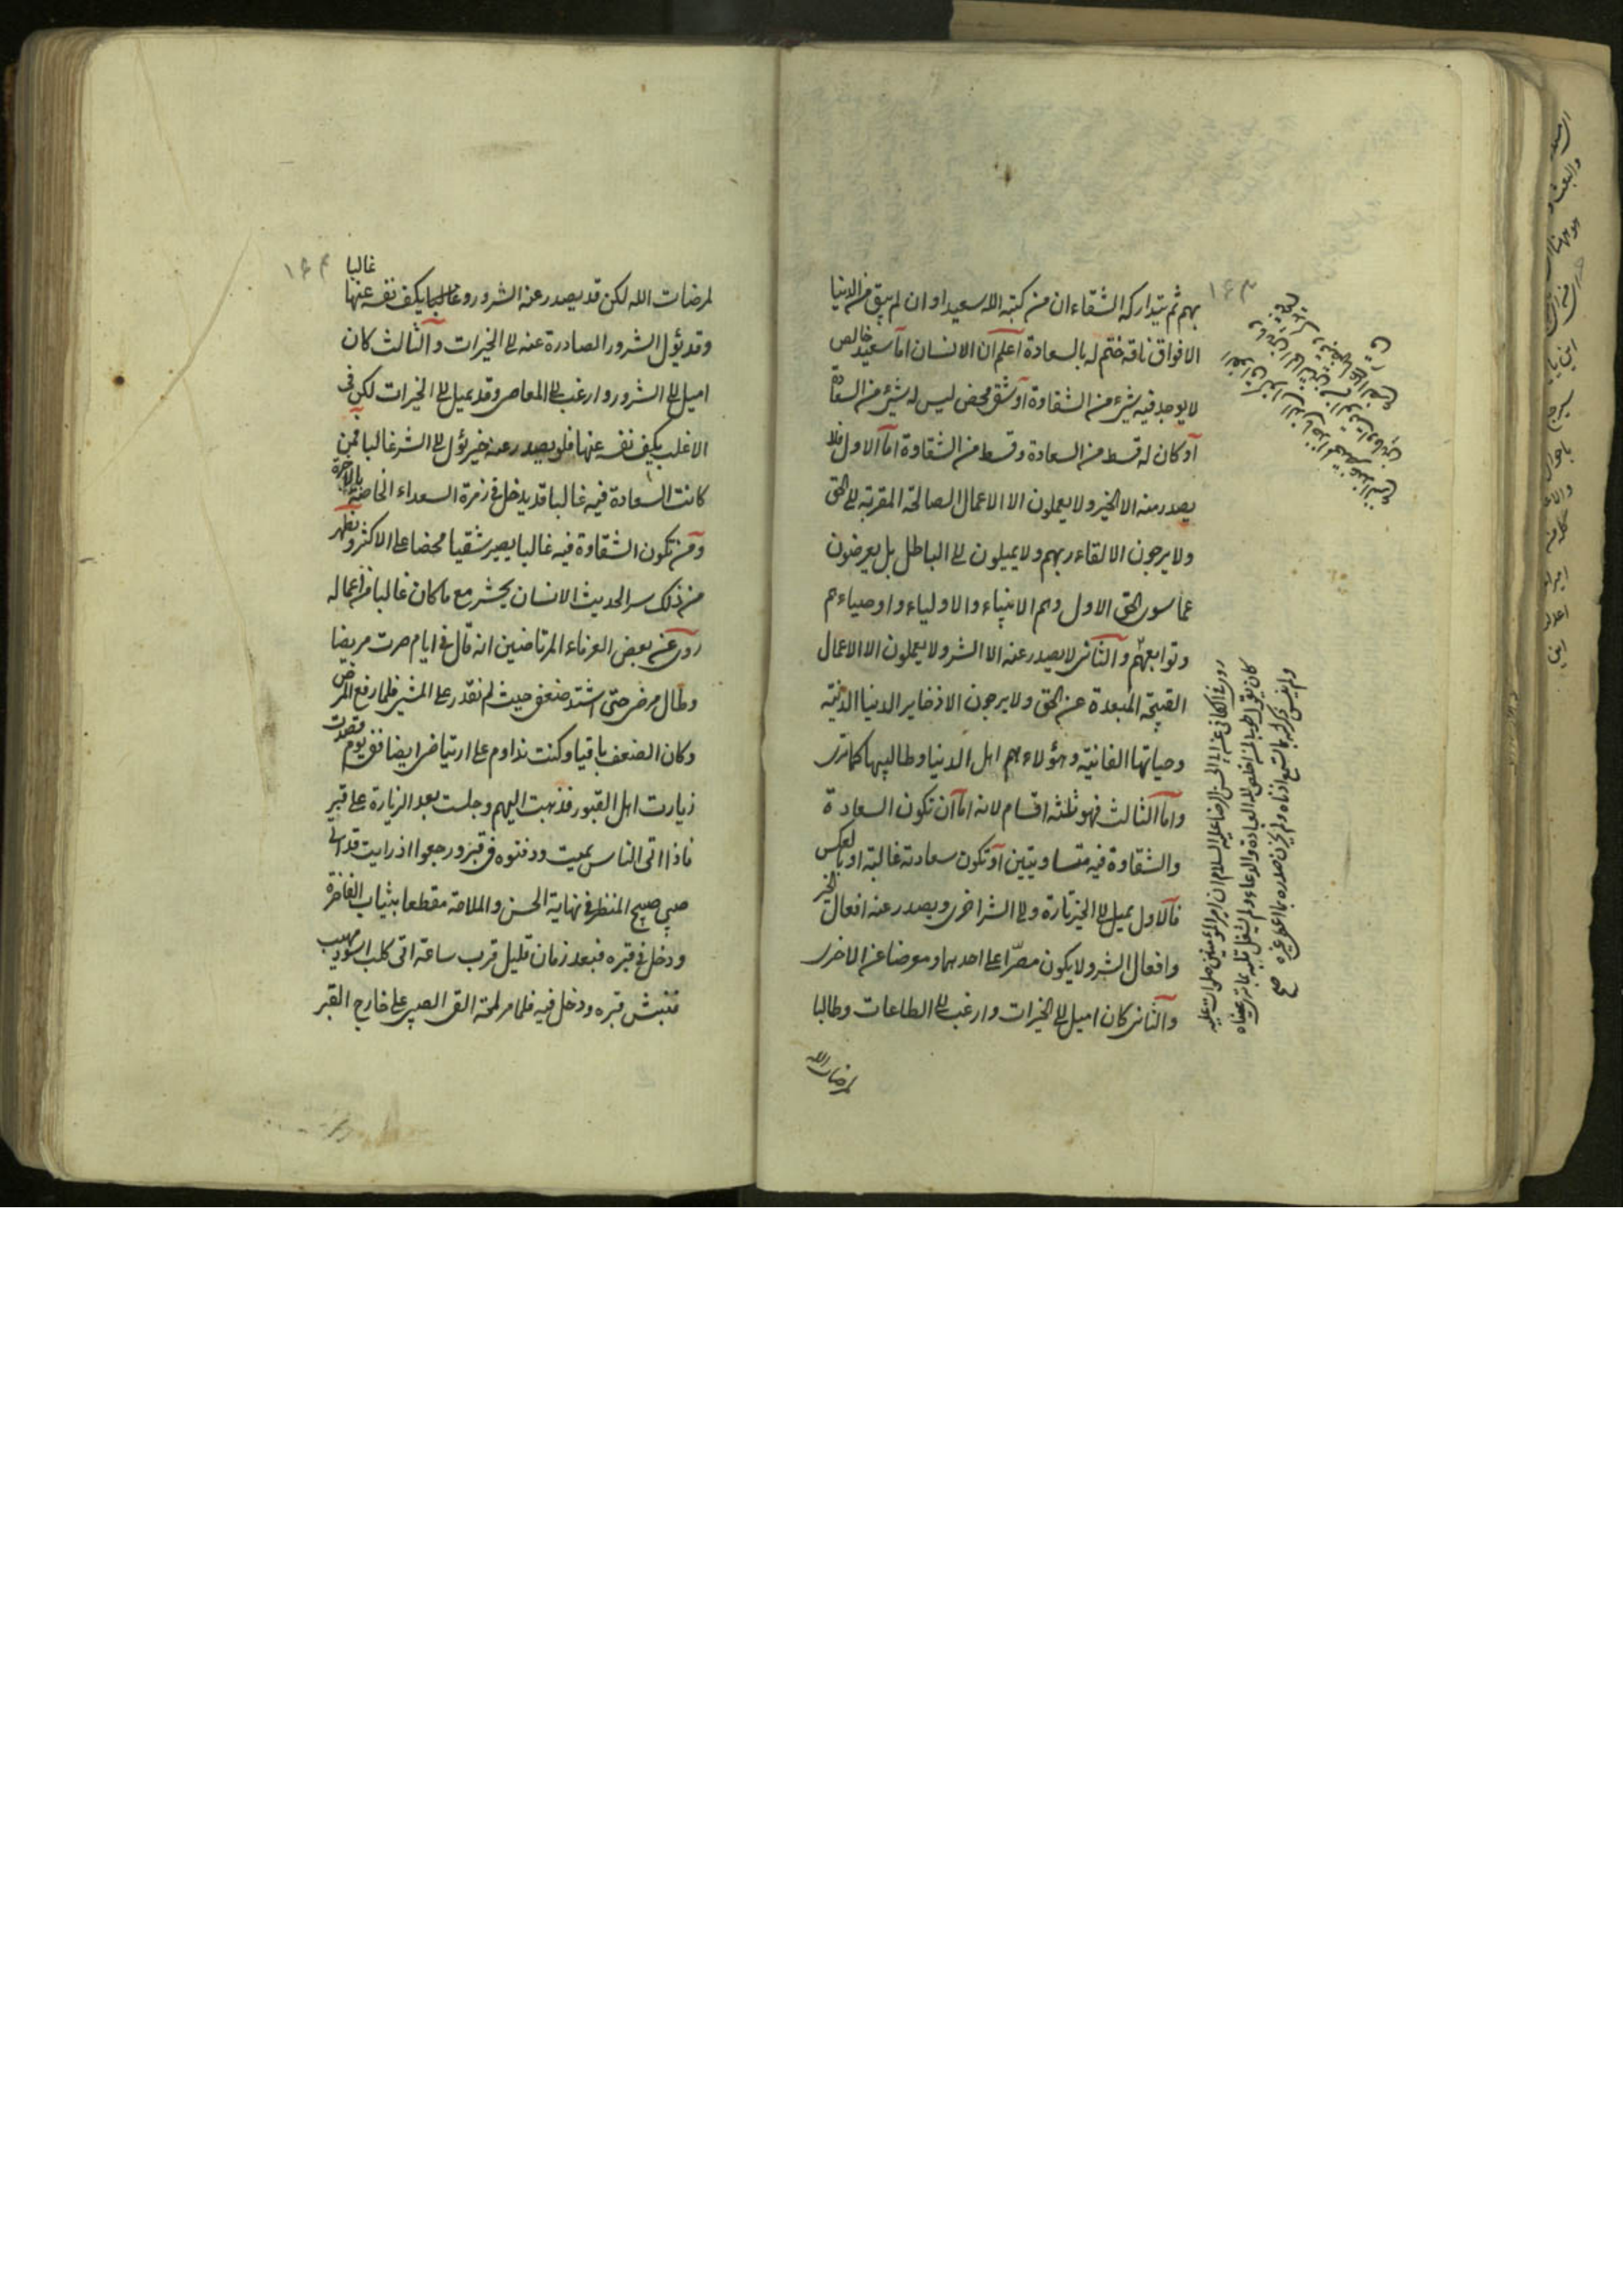 ١٦٣
بهم ثم يتداركه الشقاء ان من كتبه الله سعيدا و ان لم يبق من الدنيا
الا فواق ناقة ختم له بالسعادة اعلم ان الانسان اما سعيد خالص
لا يوجد فيه شيء من الشقاوة او شقي محض ليس له شيء من السعادة
او كان له قسط من السعادة و قسط من الشقاوة اما الاول فلا
يصدر منه الا الخير ولا يعملون الا الاعمال الصالحة المقربة الى الحق
ولا يرجون الا لقاء ربهم ولا يميلون الى الباطل بل يعرضون
عما سوى الحق الاول وهم الانبياء والاولياء و اوصياءهم
وتوابعهم والثاني لا يصدر عنه الا الشر ولا يعملون الا الاعمال
القبيحة المبعدة عن الحق ولا يرجون الا ذخاير الدنيا الدنية
وحياتها الفانية وهؤلاء هم اهل الدنيا وطالبيها كما ترى
واما الثالث فهو ثلثة اقسام لانه اما ان تكون السعادة
والشقاوة فيه متساويتين او تكون سعادته غالبة او بالعكس
فالاول يميل الى الخير تارة والى الشر اخرى ويصدر عنه افعال الخير
وافعال الشر ولا يكون مصرّا على احدهما ومعرضا عن الاخرى
والثاني كان اميل الى الخيرات وارغب الى الطاعات وطالبا
لمرضات الله
روى في الكافي عن ابي الحسن الرضا عليه السلام ان امير المؤمنين صلوات عليه
كان يقول طوبى لمن اخلص لله العبادة والدعاء ولم يشغل قلبه بما ترى عيناه
ولم ينس ذكر الله بما تسمع اذناه ولم يحزن صدره بما اعطى غيره صح
١٦٤
غالبا
لمرضات الله لكن قد يصدر عنه الشرور و يكف نفسه عنها
وقد يؤل الشرور الصادرة عنه الى الخيرات والثالث كان
اميل الى الشرور وارغب الى المعاصى وقد يميل الى الخيرات لكن فى
الاغلب يكف نفسه عنها فلو يصدر عنه خير يؤل الى الشر غالبا فمن
كانت السعادة فيه غالبا قد يدخل فى زمرة السعداء الخاصة بالاخرة
ومن تكون الشقاوة فيه غالبا يصير شقيا محضا على الاكثر ويظهر
من ذلك سر الحديث الانسان يحشر مع ما كان غالبا من اعماله
روى عن بعض العرفاء المرتاضين انه قال فى ايام صرت مريضا
وطال مرضى حتى اشتد ضعفى حيث لم نقدر على المشى فلما رفع المرض
وكان الضعف باقيا وكنت نداوم على ارتياضى ايضا ففى يوم قصدت
زيارت اهل القبور فذهبت اليهم وجلست بعد الزيارة على قبر
فاذا اتى الناس بميت ودفنوه فى قبر ورجعوا اذ رايت قد اتى
صبى صبيح المنظر فى نهاية الحسن والملاحة مقطعا بثياب الفاخرة
ودخل فى قبره فبعد زمان قليل قرب ساعة اتى كلب اسود مهيب
فنبش قبره ودخل فيه فلما مر لمحة القى الصبى على خارج القبر